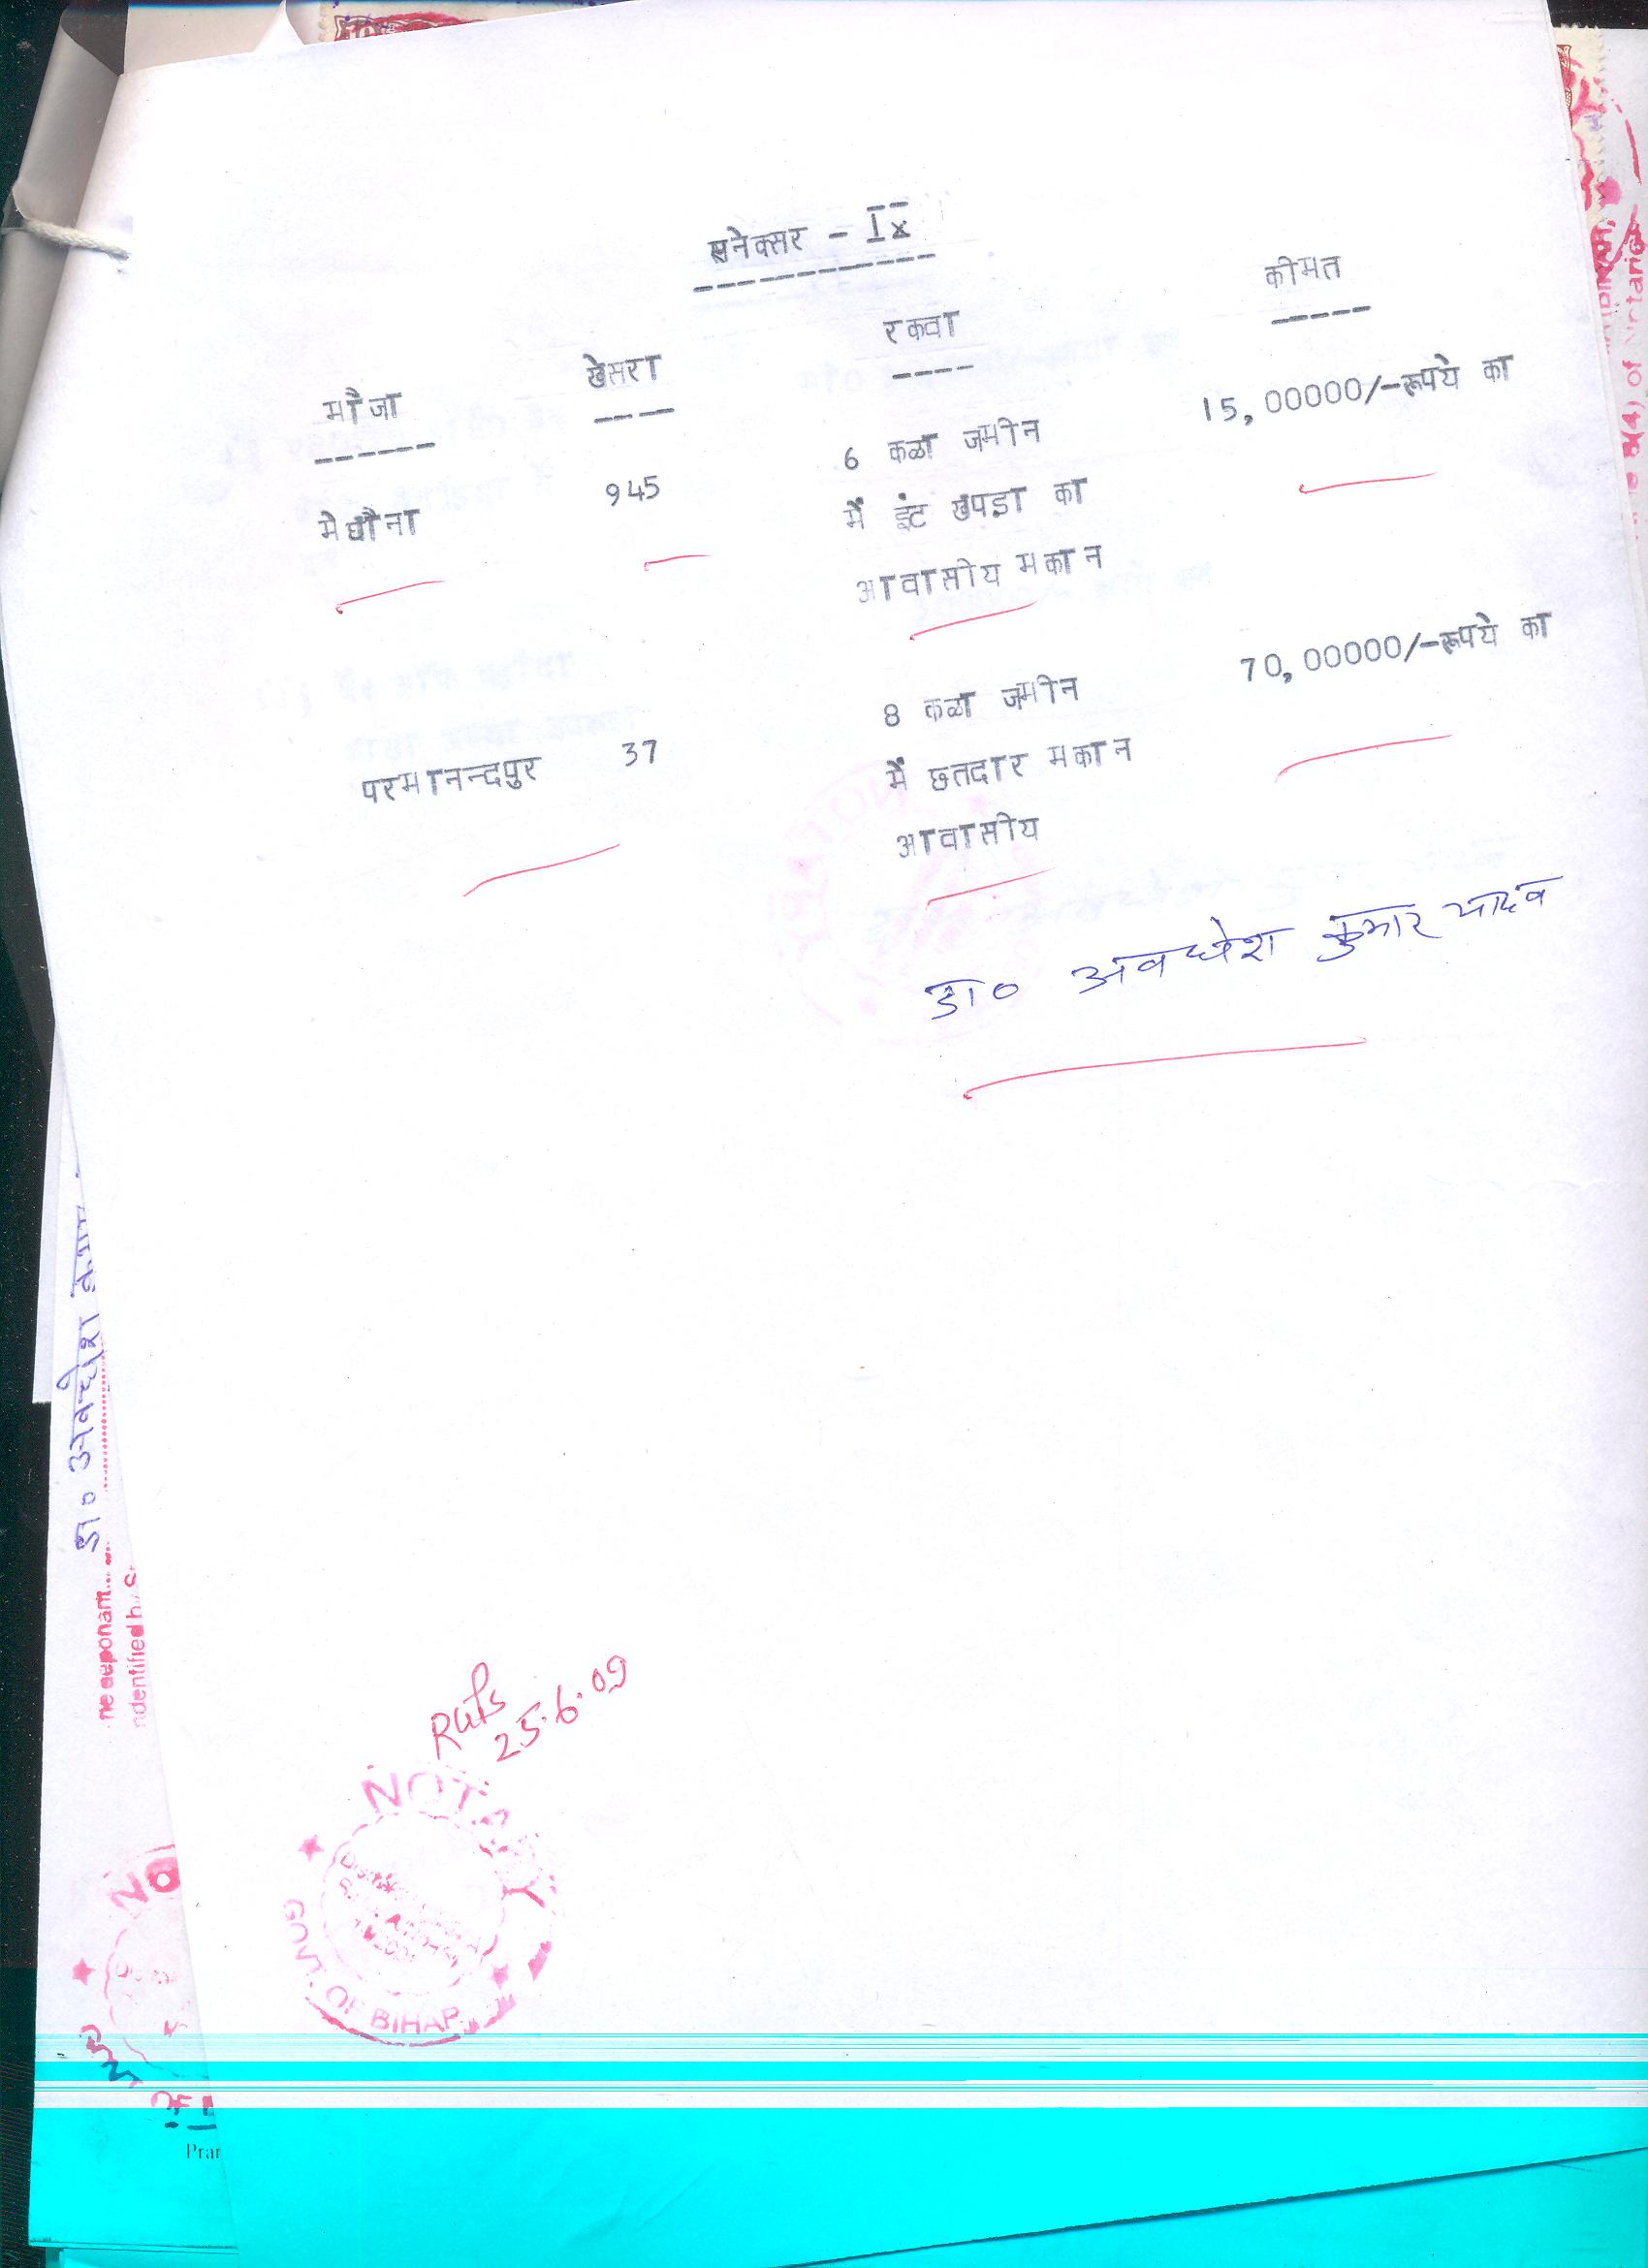 एनेक्सर - IX
मौजा खेसरा रकवा कीमत
मेघौना 945 6 कट्ठा जमीन 15,00000/-रूपये का
में ईंट खपड़ा का
आवासीय मकान
परमानन्दपुर 37 8 कट्ठा जमीन 70,00000/-रूपये का
में छतदार मकान
आवासीय
डा० अवधेश कुमार यादव
डा० अवधेश
ndentified
25.6.09
NOTARY
GOVT. OF BIHAR
NO
(4) of Notaries
Prar